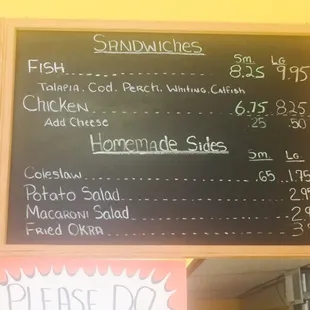 SANDWICHES
Sm. Lg.
FISH 8.25 9.95
TALAPIA, COD, PERCH, WHITING, CATFISH
CHICKEN 6.75 8.25
ADD CHEESE .25 .50
HOMEMADE SIDES
Sm. Lg.
COLESLAW .65 1.75
POTATO SALAD
MACARONI SALAD
FRIED OKRA
PLEASE DO